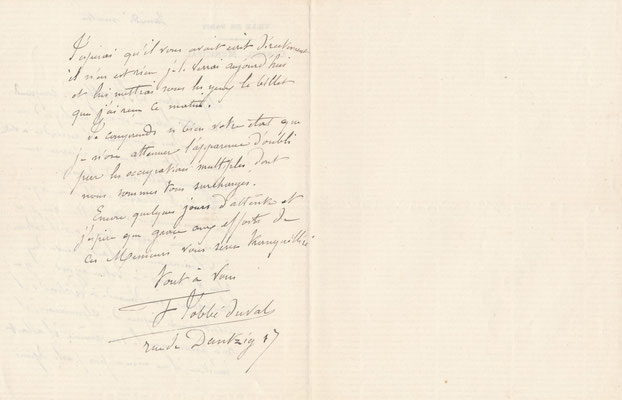 J'espérais qu'il vous avait écrit directement
il n'en est rien je le verrai aujourd'hui
et lui mettrai sous les yeux le billet
que j'ai reçu ce matin.
Je comprends si bien votre état que
je n'ose atténuer l'apparence d'oubli
par les occupations multiples dont
nous sommes tous surchargés.
Encore quelques jours d'attente et
j'espère que grâce aux efforts de
ces Messieurs vous serez tranquillisé
Tout à Vous
L'abbé Duval
rue de Dantzig 17